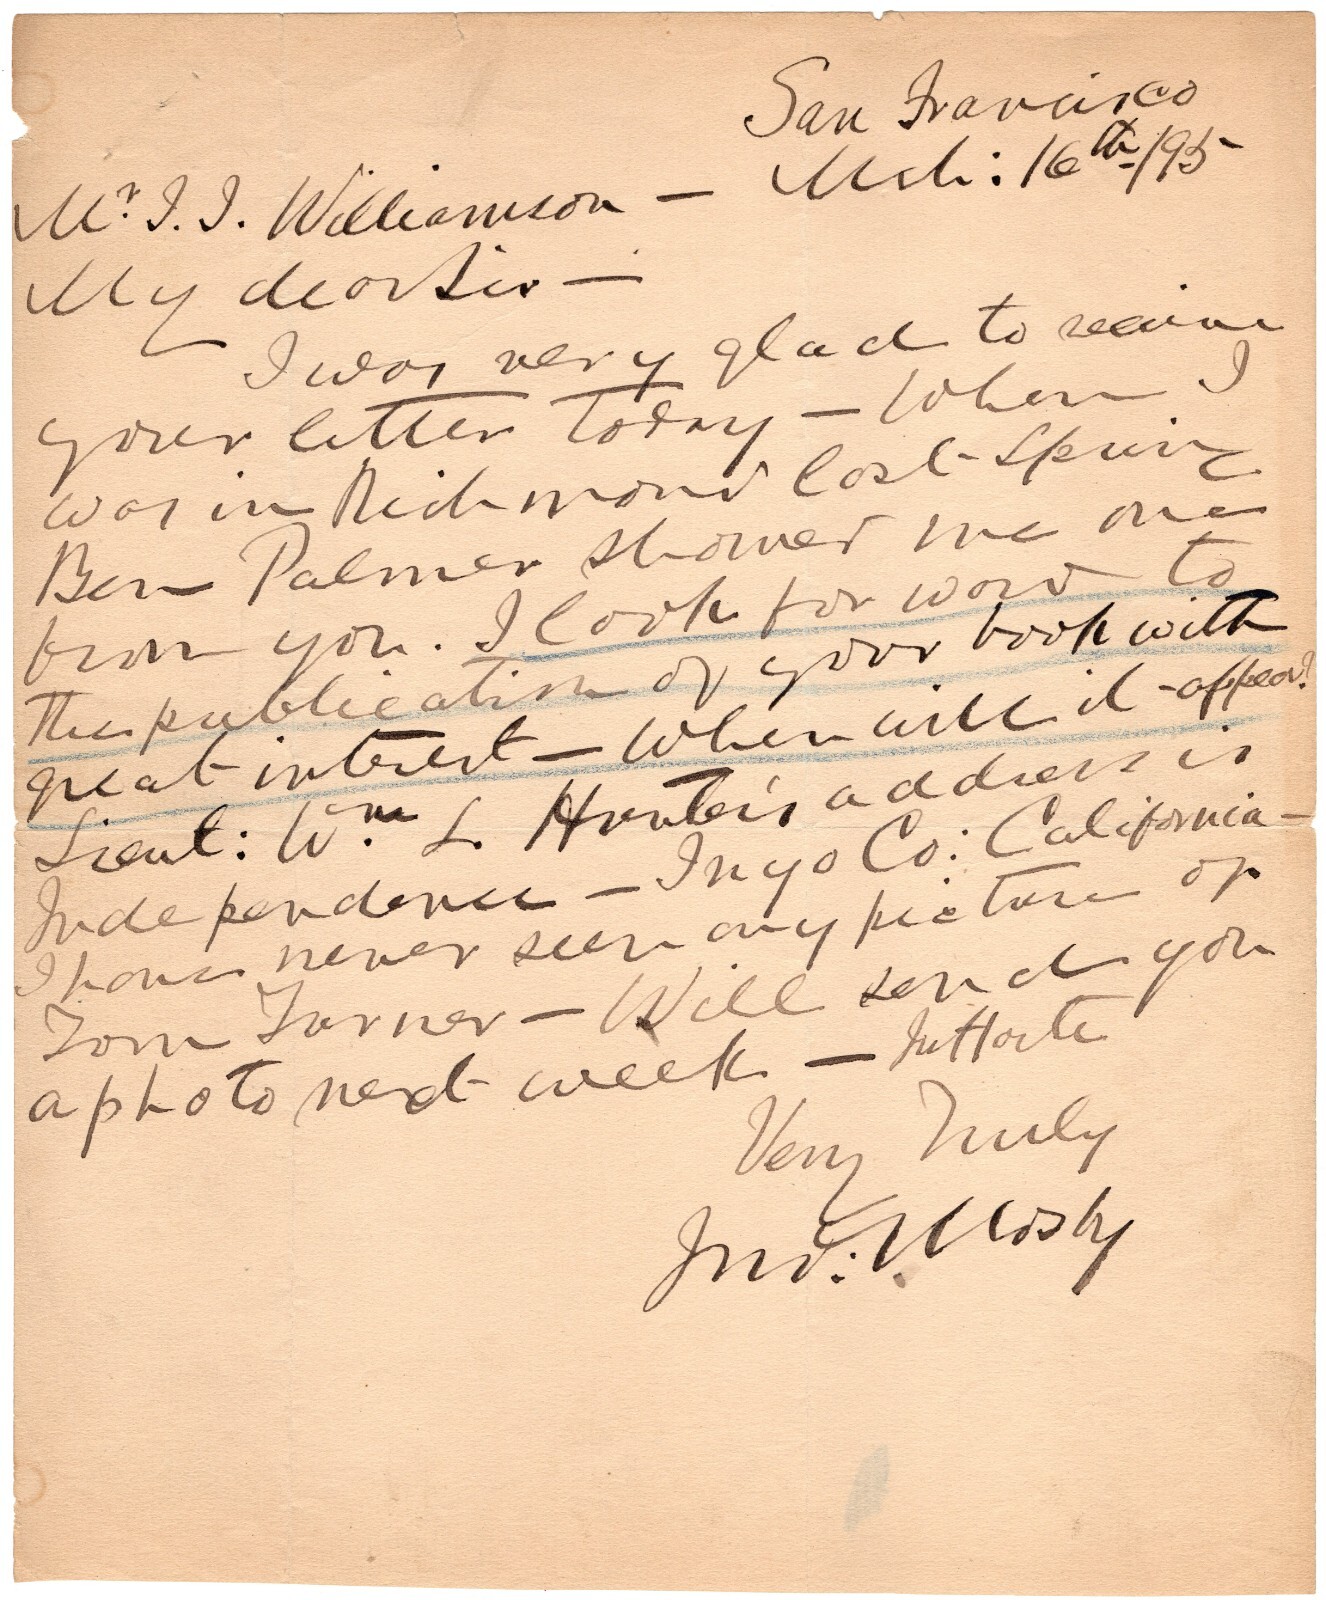 San Francisco
Mch: 16th/95
Mr. J. J. Williamson —
My dear Sir —
I was very glad to receive
your letter today — When I
was in Richmond last Spring
Ben Palmer showed me one
from you. I look forward to
the publication of your book with
great interest — When will it appear?
Lieut: Wm L. Hunter's address is
Independence — Inyo Co: California —
I have never seen any picture of
Tom Turner — Will send you
a photo next week — In Haste
Very Truly
Jno: S. Mosby